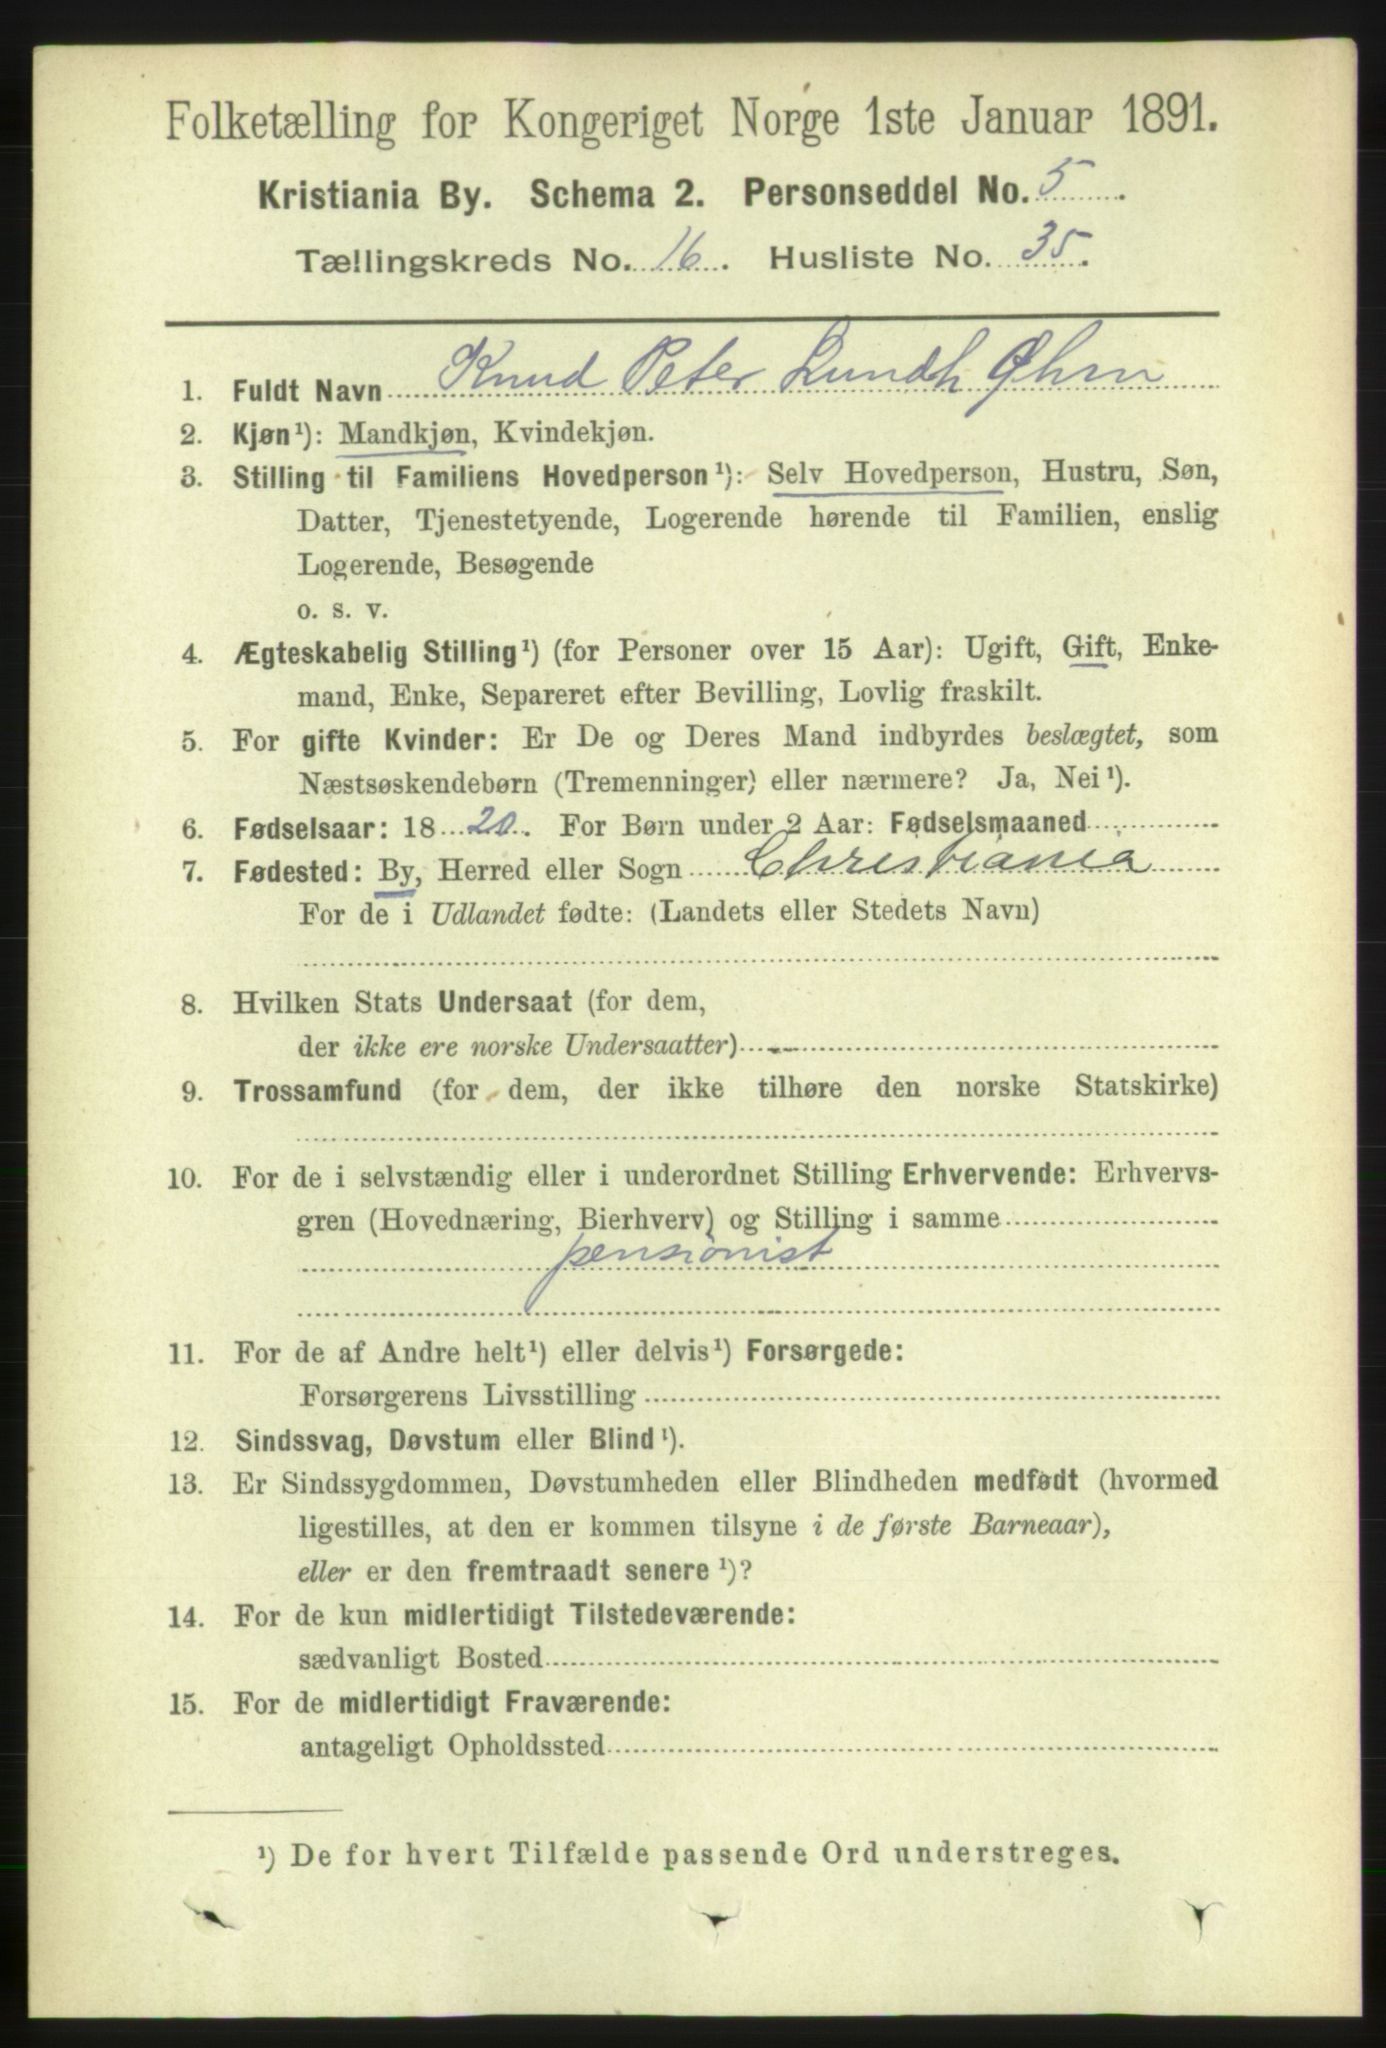 Folketælling for Kongeriget Norge 1ste Januar 1891.
Kristiania By. Schema 2. Personseddel No. 5.
Tællingskreds No. 16. Husliste No. 35.
1. Fuldt Navn Knud Peter Lundh Øhrn
2. Kjøn¹): Mandkjøn, Kvindekjøn.
3. Stilling til Familiens Hovedperson¹): Selv Hovedperson, Hustru, Søn,
Datter, Tjenestetyende, Logerende hørende til Familien, enslig
Logerende, Besøgende
o. s. v.
4. Ægteskabelig Stilling¹) (for Personer over 15 Aar): Ugift, Gift, Enke-
mand, Enke, Separeret efter Bevilling, Lovlig fraskilt.
5. For gifte Kvinder: Er De og Deres Mand indbyrdes beslægtet, som
Næstsøskendebørn (Tremenninger) eller nærmere? Ja, Nei¹).
6. Fødselsaar: 1820. For Børn under 2 Aar: Fødselsmaaned
7. Fødested: By, Herred eller Sogn Christiania
For de i Udlandet fødte: (Landets eller Stedets Navn)
8. Hvilken Stats Undersaat (for dem,
der ikke ere norske Undersaatter)
9. Trossamfund (for dem, der ikke tilhøre den norske Statskirke)
10. For de i selvstændig eller i underordnet Stilling Erhvervende: Erhvervs-
gren (Hovednæring, Bierhverv) og Stilling i samme
pensionist
11. For de af Andre helt¹) eller delvis¹) Forsørgede:
Forsørgerens Livsstilling
12. Sindssvag, Døvstum eller Blind¹).
13. Er Sindssygdommen, Døvstumheden eller Blindheden medfødt (hvormed
ligestilles, at den er kommen tilsyne i de første Barneaar),
eller er den fremtraadt senere¹)?
14. For de kun midlertidigt Tilstedeværende:
sædvanligt Bosted
15. For de midlertidigt Fraværende:
antageligt Opholdssted
¹) De for hvert Tilfælde passende Ord understreges.